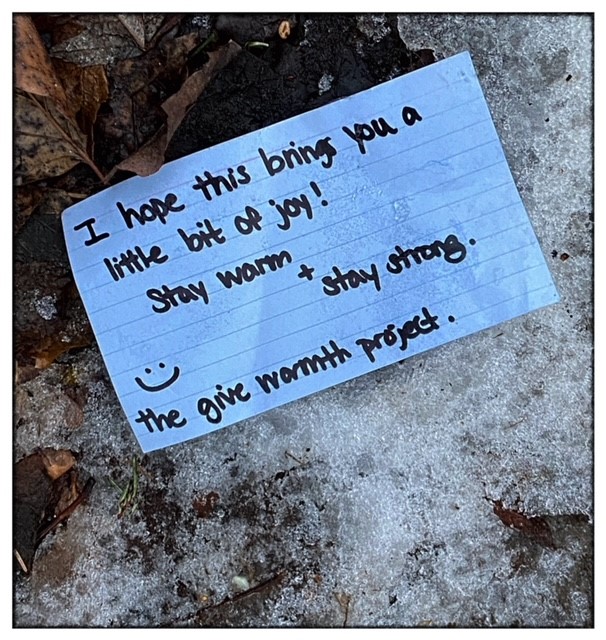 I hope this brings you a
little bit of joy!
Stay warm + stay strong.
the give warmth project.